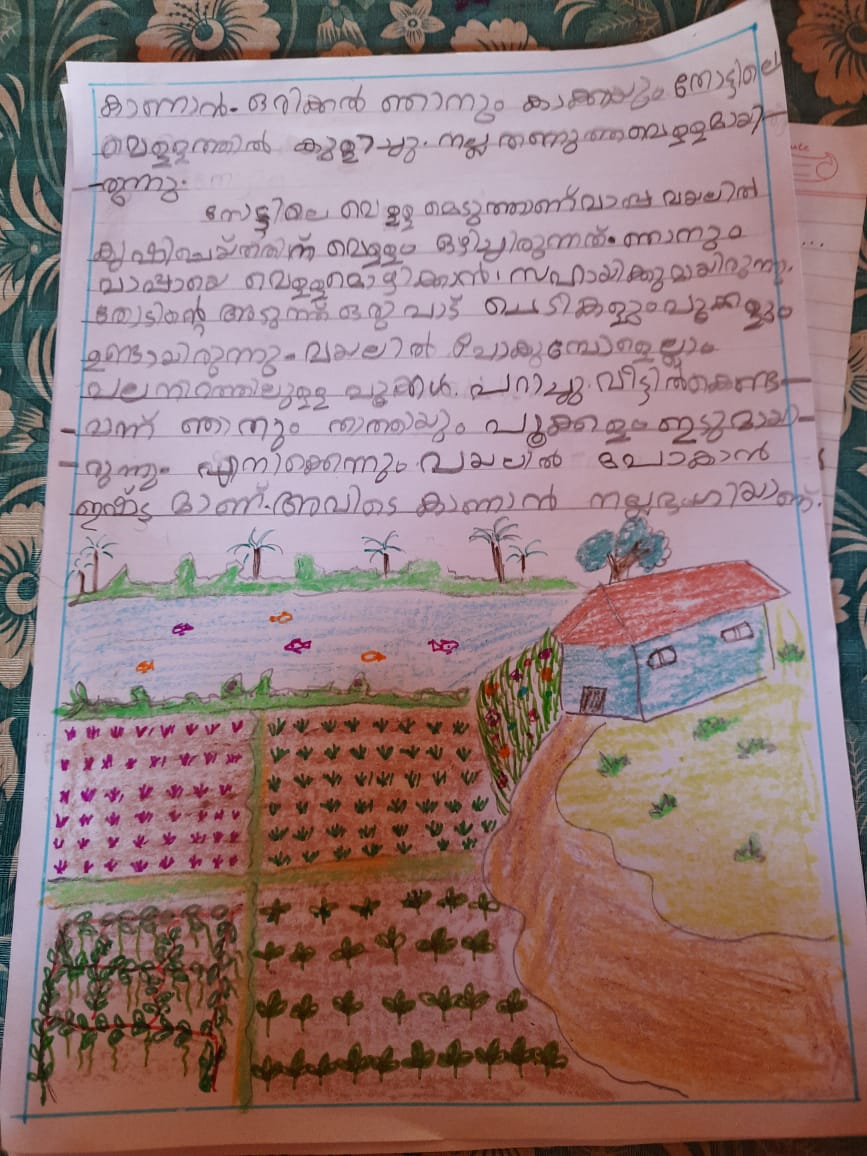 കാണാൻ. ഒരിക്കൽ ഞാനും കാക്കയും തോട്ടിലെ
വെള്ളത്തിൽ കുളിച്ചു. നല്ല തണുത്തവെള്ളമായി-
-രുന്നു.
തോട്ടിലെ വെള്ളമെടുത്താണ് വാപ്പ വയലിൽ
കൃഷിചെയ്തതിന് വെള്ളം ഒഴിച്ചിരുന്നത്. ഞാനും
വാപ്പായെ വെള്ളമൊഴിക്കാൻ സഹായിക്കുമായിരുന്നു.
തോടിന്റെ അടുത്ത് ഒരുപാട് ചെടികളുംപൂക്കളും
ഉണ്ടായിരുന്നു. വയലിൽ പോകുമ്പോളെല്ലാം
പലനിറത്തിലുള്ള പൂക്കൾ പറിച്ചു വീട്ടിൽകൊണ്ടു-
-വന്ന് ഞാനും താത്തായും പൂക്കളം ഇടുമായി-
-രുന്നു. എനിക്കെന്നും വയലിൽ പോകാൻ
ഇഷ്ട്ടമാണ്. അവിടെ കാണാൻ നല്ലഭംഗിയാണ്.